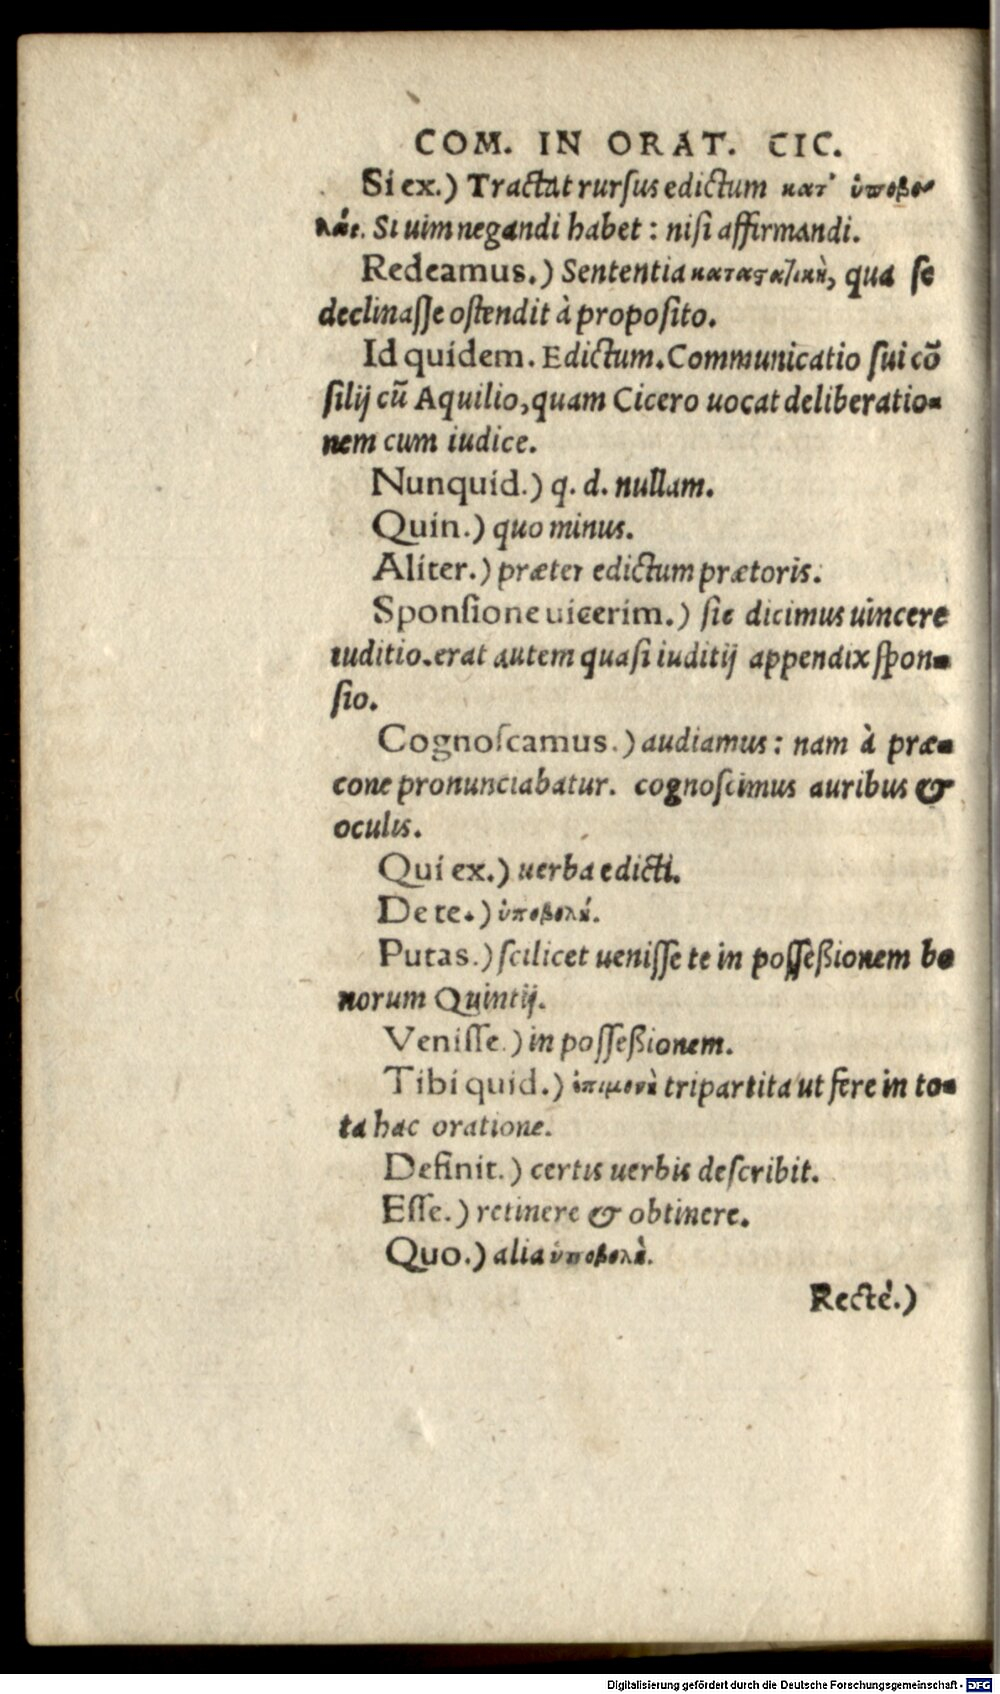 COM. IN ORAT. CIC.
Si ex.) Tractat rursus edictum κατ' ὑποβο-
λάς. Si uim negandi habet: nisi affirmandi.
Redeamus.) Sententia καταστατικὴ, qua se
declinasse ostendit à proposito.
Id quidem. Edictum. Communicatio sui cō
silij cū Aquilio, quam Cicero uocat deliberatio-
nem cum iudice.
Nunquid.) q. d. nullam.
Quin.) quo minus.
Aliter.) præter edictum prætoris.
Sponsione uicerim.) sic dicimus uincere
iuditio. erat autem quasi iuditij appendix spon-
sio.
Cognoscamus.) audiamus: nam à præ-
cone pronunciabatur. cognoscimus auribus &
oculis.
Qui ex.) uerba edicti.
De te.) ὑποβολή.
Putas.) scilicet uenisse te in posseßionem bo
norum Quintij.
Venisse.) in possessßionem.
Tibi quid.) ἐπιμονὴ tripartita ut fere in to-
ta hac oratione.
Definit.) certis uerbis describit.
Esse.) retinere & obtinere.
Quo.) alia ὑποβολὴ.
Recté.)
Digitalisierung gefördert durch die Deutsche Forschungsgemeinschaft - DFG